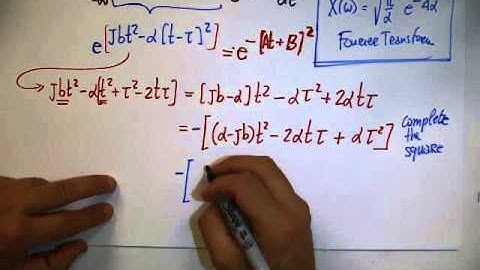 e^[Jbt²-α[t-τ]²] = e^-[At+B]²
X(ω) = √π/α e
Fourier Transform
Jbt²-α[t²+τ²-2tτ] = [Jb-α]t²-ατ²+2αtτ
= -[(α-Jb)t²-2αtτ+ατ²]
complete
the
square
-[